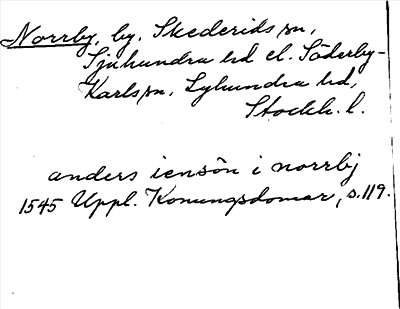 Norrby, by. Skederids sn,
Sjuhundra hd el. Söderby-
Karls sn, Lyhundra hd,
Stockh. l.
anders iensön i norrbj
1545 Uppl. Konungsdomar, s. 119.